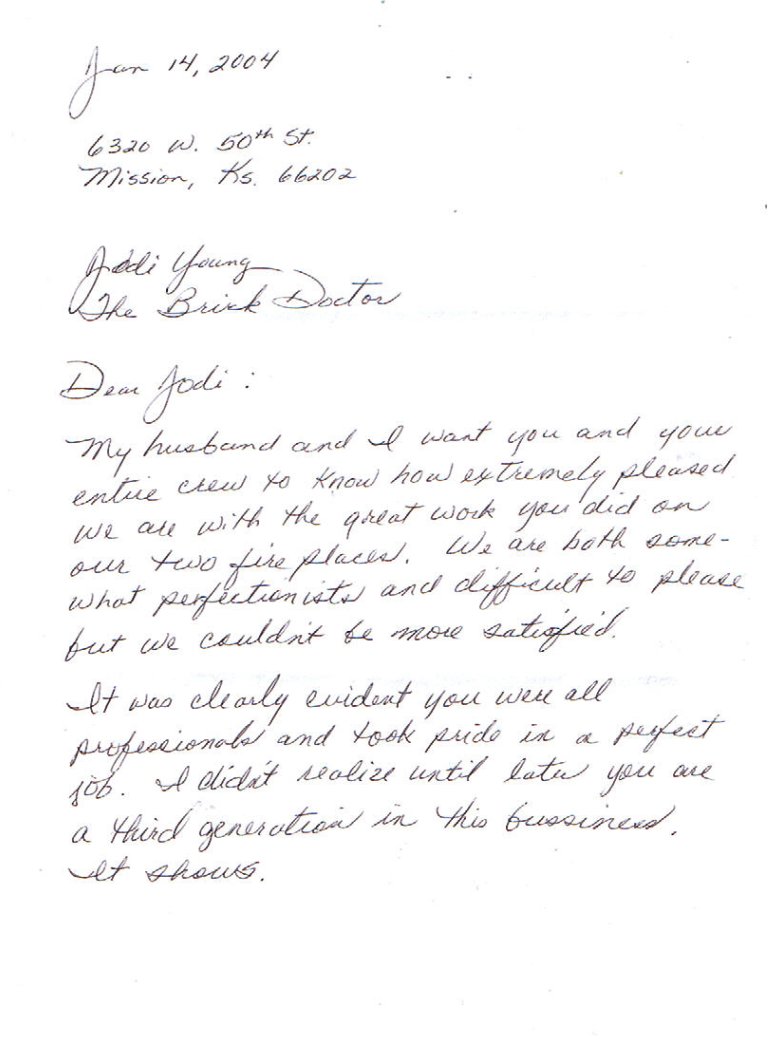 Jan 14, 2004
6320 W. 50th St.
Mission, Ks. 66202
Jodi Young
The Brick Doctor
Dear Jodi :
My husband and I want you and your
entire crew to know how extremely pleased
we are with the great work you did on
our two fire places. We are both some-
what perfectionists and difficult to please
but we couldn't be more satisfied.
It was clearly evident you were all
professionals and took pride in a perfect
job. I didn't realize until later you are
a third generation in this bussiness.
It shows.